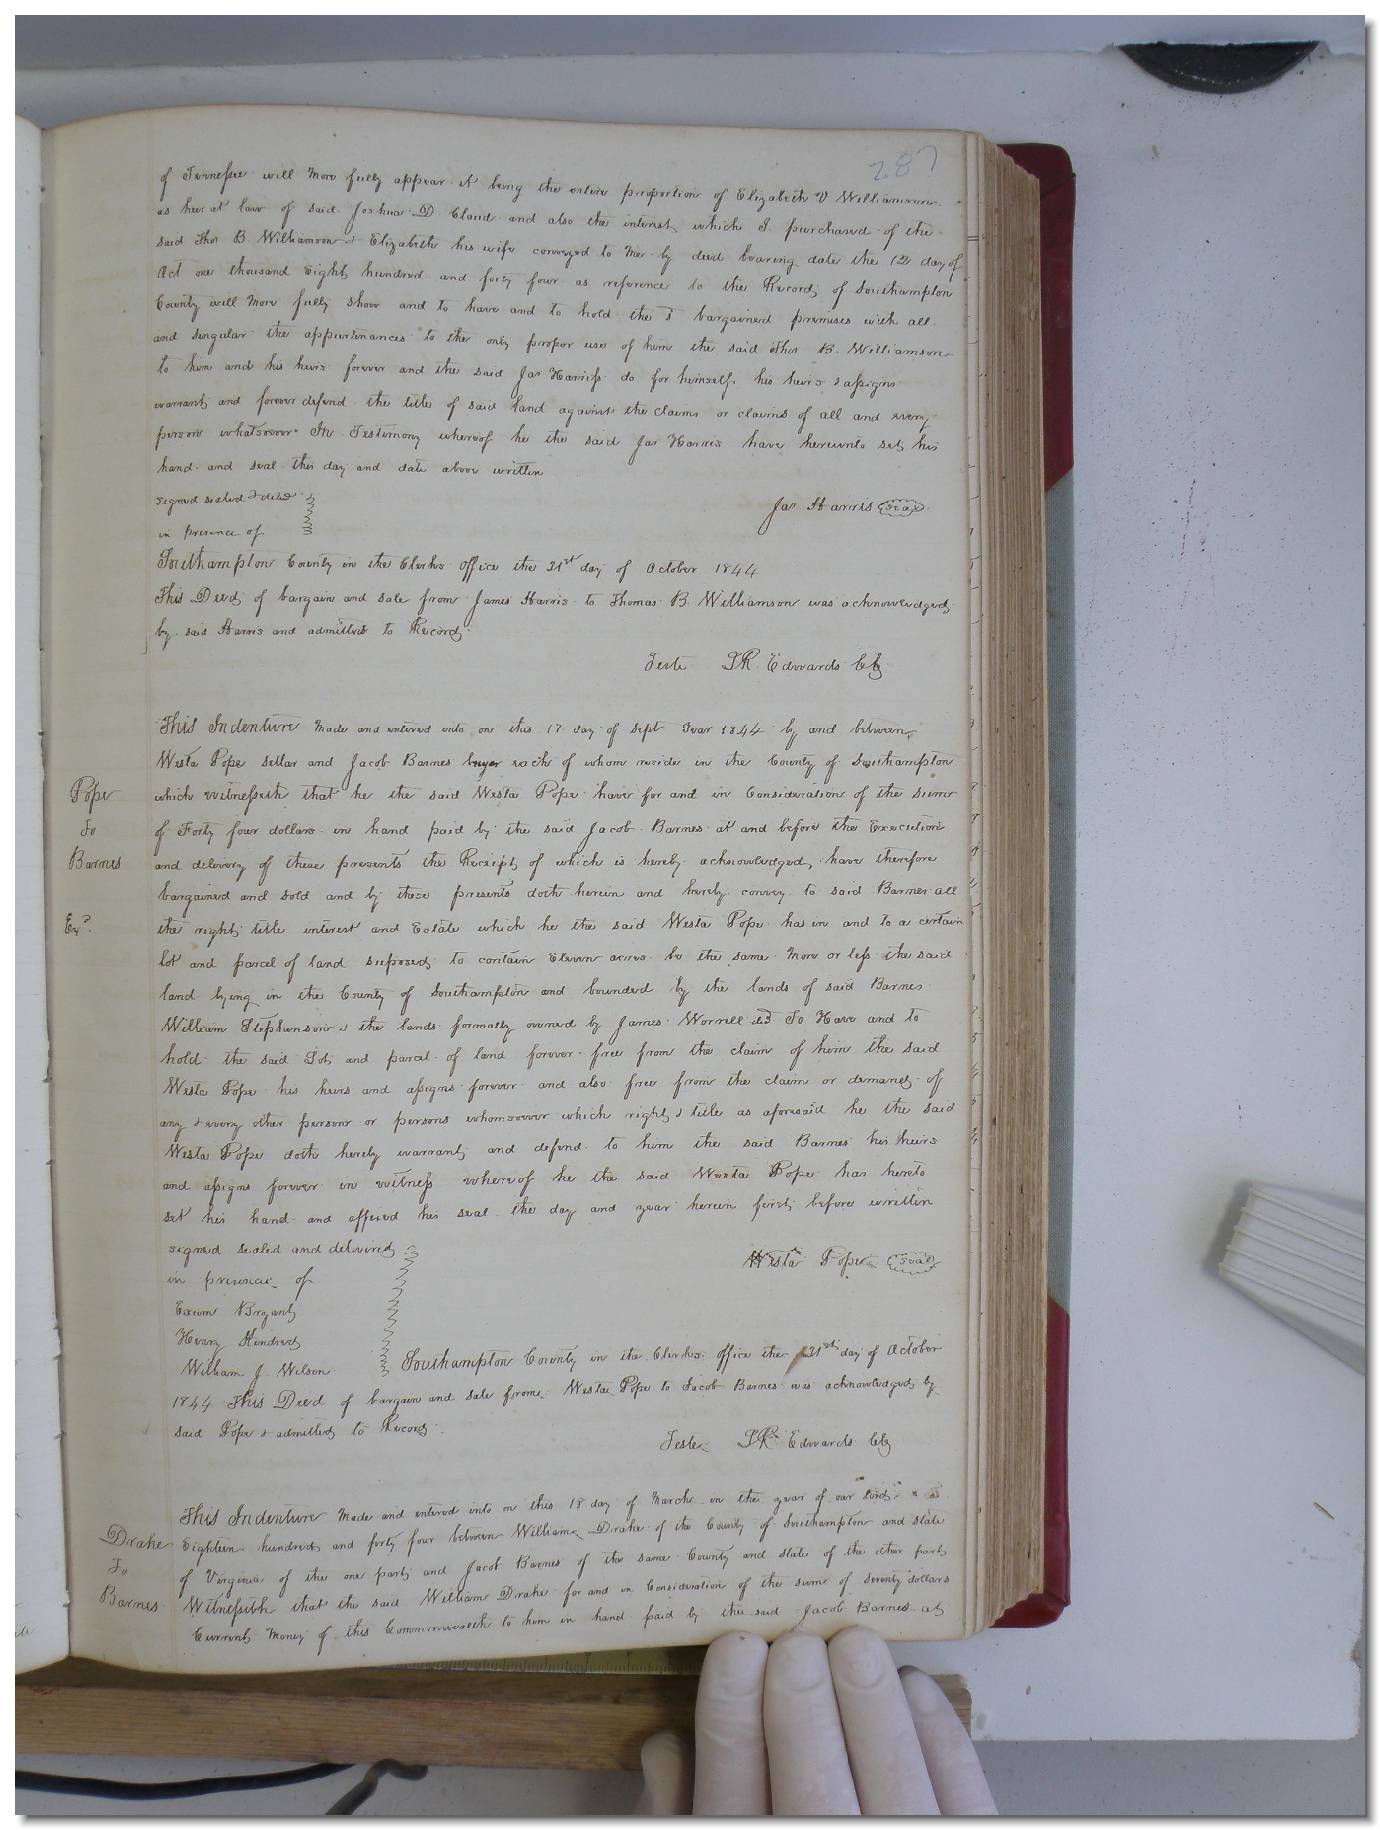 287
of Tennessee will more fully appear it being the entire proportion of Elizabeth V Williamson
as heir at law of said Joshua D. Claud and also the interest which I purchased of the
said Thos B. Williamson & Elizabeth his wife conveyed to me by deed bearing date the 12 day of
Oct one thousand Eight hundred and forty four as reference to the Records of Southampton
County will more fully show and to have and to hold the s bargained premises with all
and singular the appurtenances to the only proper use of him the said Thos B. Williamson
to him and his heirs forever and the said Jas Harriss do for himself his heirs & assigns
warrant and forever defend the title of said land against the claims or claims of all and every
person whatsoever In Testimony whereof he the said Jas Harris have hereunto set his
hand and seal this day and date above written
signed sealed & deld
in presence of
Jas Harris seal
Southampton County in the Clerks office the 21st day of October 1844
This Deed of bargain and sale from James Harris to Thomas B. Williamson was acknowledged
by said Harris and admitted to Record
Teste LR Edwards Clk
This Indenture made and entered into on this 17 day of Sept Year 1844 by and between
Westa Pope sellar and Jacob Barnes buyer each of whom reside in the County of Southampton
Pope
To
Barnes
which witnesseth that he the said Westa Pope have for and in Consideration of the sum
of Forty four dollars in hand paid by the said Jacob Barnes at and before the Execution
and delivery of these presents the Receipt of which is hereby acknowledged, have therefore
bargained and sold and by these presents doth herein and hereby convey to said Barnes all
Exd
the right title interest and Estate which he the said Westa Pope has in and to a certain
lot and parcel of land supposed to contain Eleven acres be the same more or less the said
land lying in the County of Southampton and bounded by the lands of said Barnes
William Stephenson & the lands formally owned by James Worrell To Have and to
hold the said Lot and parcel of land forever free from the claim of him the said
Westa Pope his heirs and assigns forever and also free from the claim or demand of
any & every other person or persons whomsoever which right & title as aforesaid he the said
Westa Pope doth hereby warrant and defend to him the said Barnes his heirs
and assigns forever in witness whereof he the said Westa Pope has hereto
set his hand and affixed his seal the day and year herein first before written
signed sealed and delivered
in presence of
Exum Bryant
Henry Kindred
William J. Wilson
Westa Pope seal
Southampton County in the Clerks office the 21st day of October
1844 This Deed of bargain and sale from Westa Pope to Jacob Barnes was acknowledged by
said Pope & admitted to Record
Teste LR Edwards Clk
This Indenture made and entered into on this 18 day of March in the year of our lord
Drake
To
Barnes
Eighteen hundred and forty four between William Drake of the County of Southampton and state
of Virginia of the one part and Jacob Barnes of the same County and state of the other part
Witnesseth that the said William Drake for and in Consideration of the sum of seventy dollars
Current money of this Commonwealth to him in hand paid by the said Jacob Barnes at